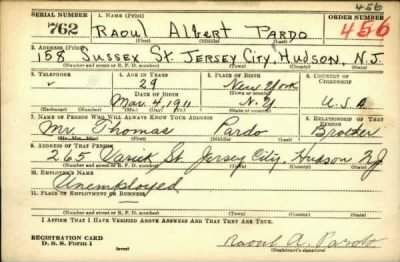 456
SERIAL NUMBER 1. NAME (Print) ORDER NUMBER
762 RAOUL ALBERT PARDO 456
(First) (Middle) (Last)
2. ADDRESS (Print)
158 SUSSEX ST. JERSEY CITY, HUDSON, N.J.
(Number and street or R. F. D. number) (Town) (County) (State)
3. TELEPHONE 4. AGE IN YEARS 5. PLACE OF BIRTH 6. COUNTRY OF CITIZENSHIP
29 New York
DATE OF BIRTH (Town or county)
Mar. 4 1911 N.Y U.S.A
(Exchange) (Number) (Mo.) (Day) (Yr.) (State or country)
7. NAME OF PERSON WHO WILL ALWAYS KNOW YOUR ADDRESS 8. RELATIONSHIP OF THAT PERSON
Mr. Thomas Pardo Brother
(Mr., Mrs., Miss) (First) (Middle) (Last)
9. ADDRESS OF THAT PERSON
265 Varick St Jersey City, Hudson NJ
(Number and street or R. F. D. number) (Town) (County) (State)
10. EMPLOYER'S NAME
Unemployed
11. PLACE OF EMPLOYMENT OR BUSINESS
(Number and street or R. F. D. number) (Town) (County) (State)
I AFFIRM THAT I HAVE VERIFIED ABOVE ANSWERS AND THAT THEY ARE TRUE.
REGISTRATION CARD
D. S. S. Form 1 (over) Raoul A. Pardo
(Registrant's signature)